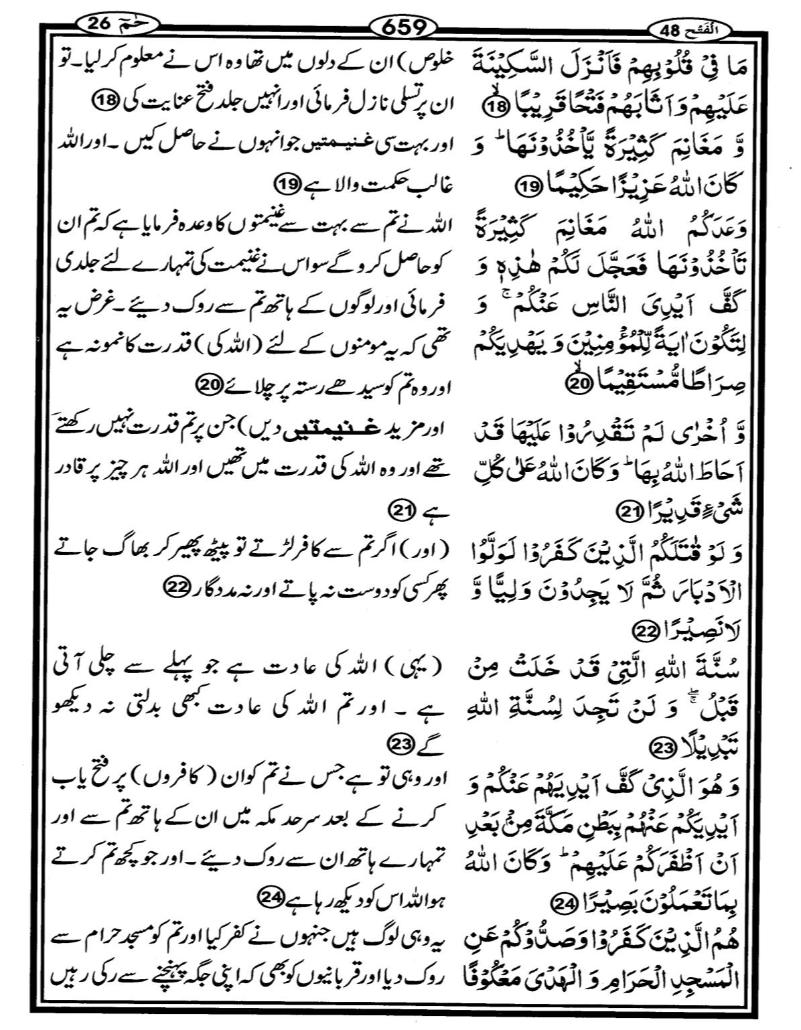 الفتح 48
659
حٰمٓ 26
مَا فِیْ قُلُوْبِهِمْ فَاَنْزَلَ السَّكِیْنَةَ
عَلَیْهِمْ وَ اَثَابَهُمْ فَتْحًا قَرِیْبًا ۙ 18
وَّ مَغَانِمَ كَثِیْرَةً یَّاْخُذُوْنَهَا ؕ وَ
كَانَ اللّٰهُ عَزِیْزًا حَكِیْمًا 19
وَعَدَكُمُ اللّٰهُ مَغَانِمَ كَثِیْرَةً
تَاْخُذُوْنَهَا فَعَجَّلَ لَكُمْ هٰذِهٖ وَ
كَفَّ اَیْدِیَ النَّاسِ عَنْكُمْ ۚ وَ
لِتَكُوْنَ اٰیَةً لِّلْمُؤْمِنِیْنَ وَ یَهْدِیَكُمْ
صِرَاطًا مُّسْتَقِیْمًا ۙ 20
وَّ اُخْرٰی لَمْ تَقْدِرُوْا عَلَیْهَا قَدْ
اَحَاطَ اللّٰهُ بِهَا ؕ وَ كَانَ اللّٰهُ عَلٰی كُلِّ
شَیْءٍ قَدِیْرًا 21
وَ لَوْ قٰتَلَكُمُ الَّذِیْنَ كَفَرُوْا لَوَلَّوُا
الْاَدْبَارَ ثُمَّ لَا یَجِدُوْنَ وَلِیًّا وَّ
لَا نَصِیْرًا 22
سُنَّةَ اللّٰهِ الَّتِیْ قَدْ خَلَتْ مِنْ
قَبْلُ ۖۚ وَ لَنْ تَجِدَ لِسُنَّةِ اللّٰهِ
تَبْدِیْلًا 23
وَ هُوَ الَّذِیْ كَفَّ اَیْدِیَهُمْ عَنْكُمْ وَ
اَیْدِیَكُمْ عَنْهُمْ بِبَطْنِ مَكَّةَ مِنْۢ بَعْدِ
اَنْ اَظْفَرَكُمْ عَلَیْهِمْ ؕ وَ كَانَ اللّٰهُ
بِمَا تَعْمَلُوْنَ بَصِیْرًا 24
هُمُ الَّذِیْنَ كَفَرُوْا وَ صَدُّوْكُمْ عَنِ
الْمَسْجِدِ الْحَرَامِ وَ الْهَدْیَ مَعْكُوْفًا
خلوص) ان کے دلوں میں تھا وہ اس نے معلوم کر لیا۔ تو
ان پر تسلی نازل فرمائی اور انہیں جلد فتح عنایت کی 18
اور بہت سی غنیمتیں جو انہوں نے حاصل کیں ۔ اور اللہ
غالب حکمت والا ہے 19
اللہ نے تم سے بہت سے غنیمتوں کا وعدہ فرمایا ہے کہ تم ان
کو حاصل کرو گے سو اس نے غنیمت کی تمہارے لئے جلدی
فرمائی اور لوگوں کے ہاتھ تم سے روک دیئے ۔ غرض یہ
تھی کہ یہ مومنوں کے لئے (اللہ کی) قدرت کا نمونہ ہے
اور وہ تم کو سیدھے رستہ پر چلائے 20
اور مزید غنیمتیں دیں) جن پر تم قدرت نہیں رکھتے
تھے اور وہ اللہ کی قدرت میں تھیں اور اللہ ہر چیز پر قادر
ہے 21
(اور) اگر تم سے کافر لڑتے تو پیٹھ پھیر کر بھاگ جاتے
پھر کسی کو دوست نہ پاتے اور نہ مددگار 22
(یہی) اللہ کی عادت ہے جو پہلے سے چلی آتی
ہے ۔ اور تم اللہ کی عادت کبھی بدلتی نہ دیکھو
گے 23
اور وہی تو ہے جس نے تم کو ان (کافروں) پر فتح یاب
کرنے کے بعد سرحد مکہ میں ان کے ہاتھ تم سے اور
تمہارے ہاتھ ان سے روک دیئے ۔ اور جو کچھ تم کرتے
ہو اللہ اس کو دیکھ رہا ہے 24
یہ وہی لوگ ہیں جنہوں نے کفر کیا اور تم کو مسجد حرام سے
روک دیا اور قربانیوں کو بھی کہ اپنی جگہ پہنچنے سے رکی رہیں